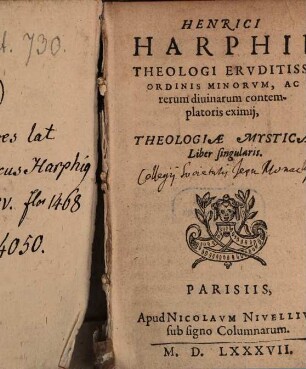 t. 730.
)
es lat
cus Harphiq
v. flor 1468
4050.
HENRICI
HARPHII
THEOLOGI ERVDITISS
ORDINIS MINORVM, AC
rerum diuinarum contem-
platoris eximij,
THEOLOGIÆ MYSTICÆ
Liber singularis.
Collegij Societatis Jesu Monac
PARISIIS,
Apud NICOLAVM NIVELLIV
sub signo Columnarum.
M. D. LXXXVII.